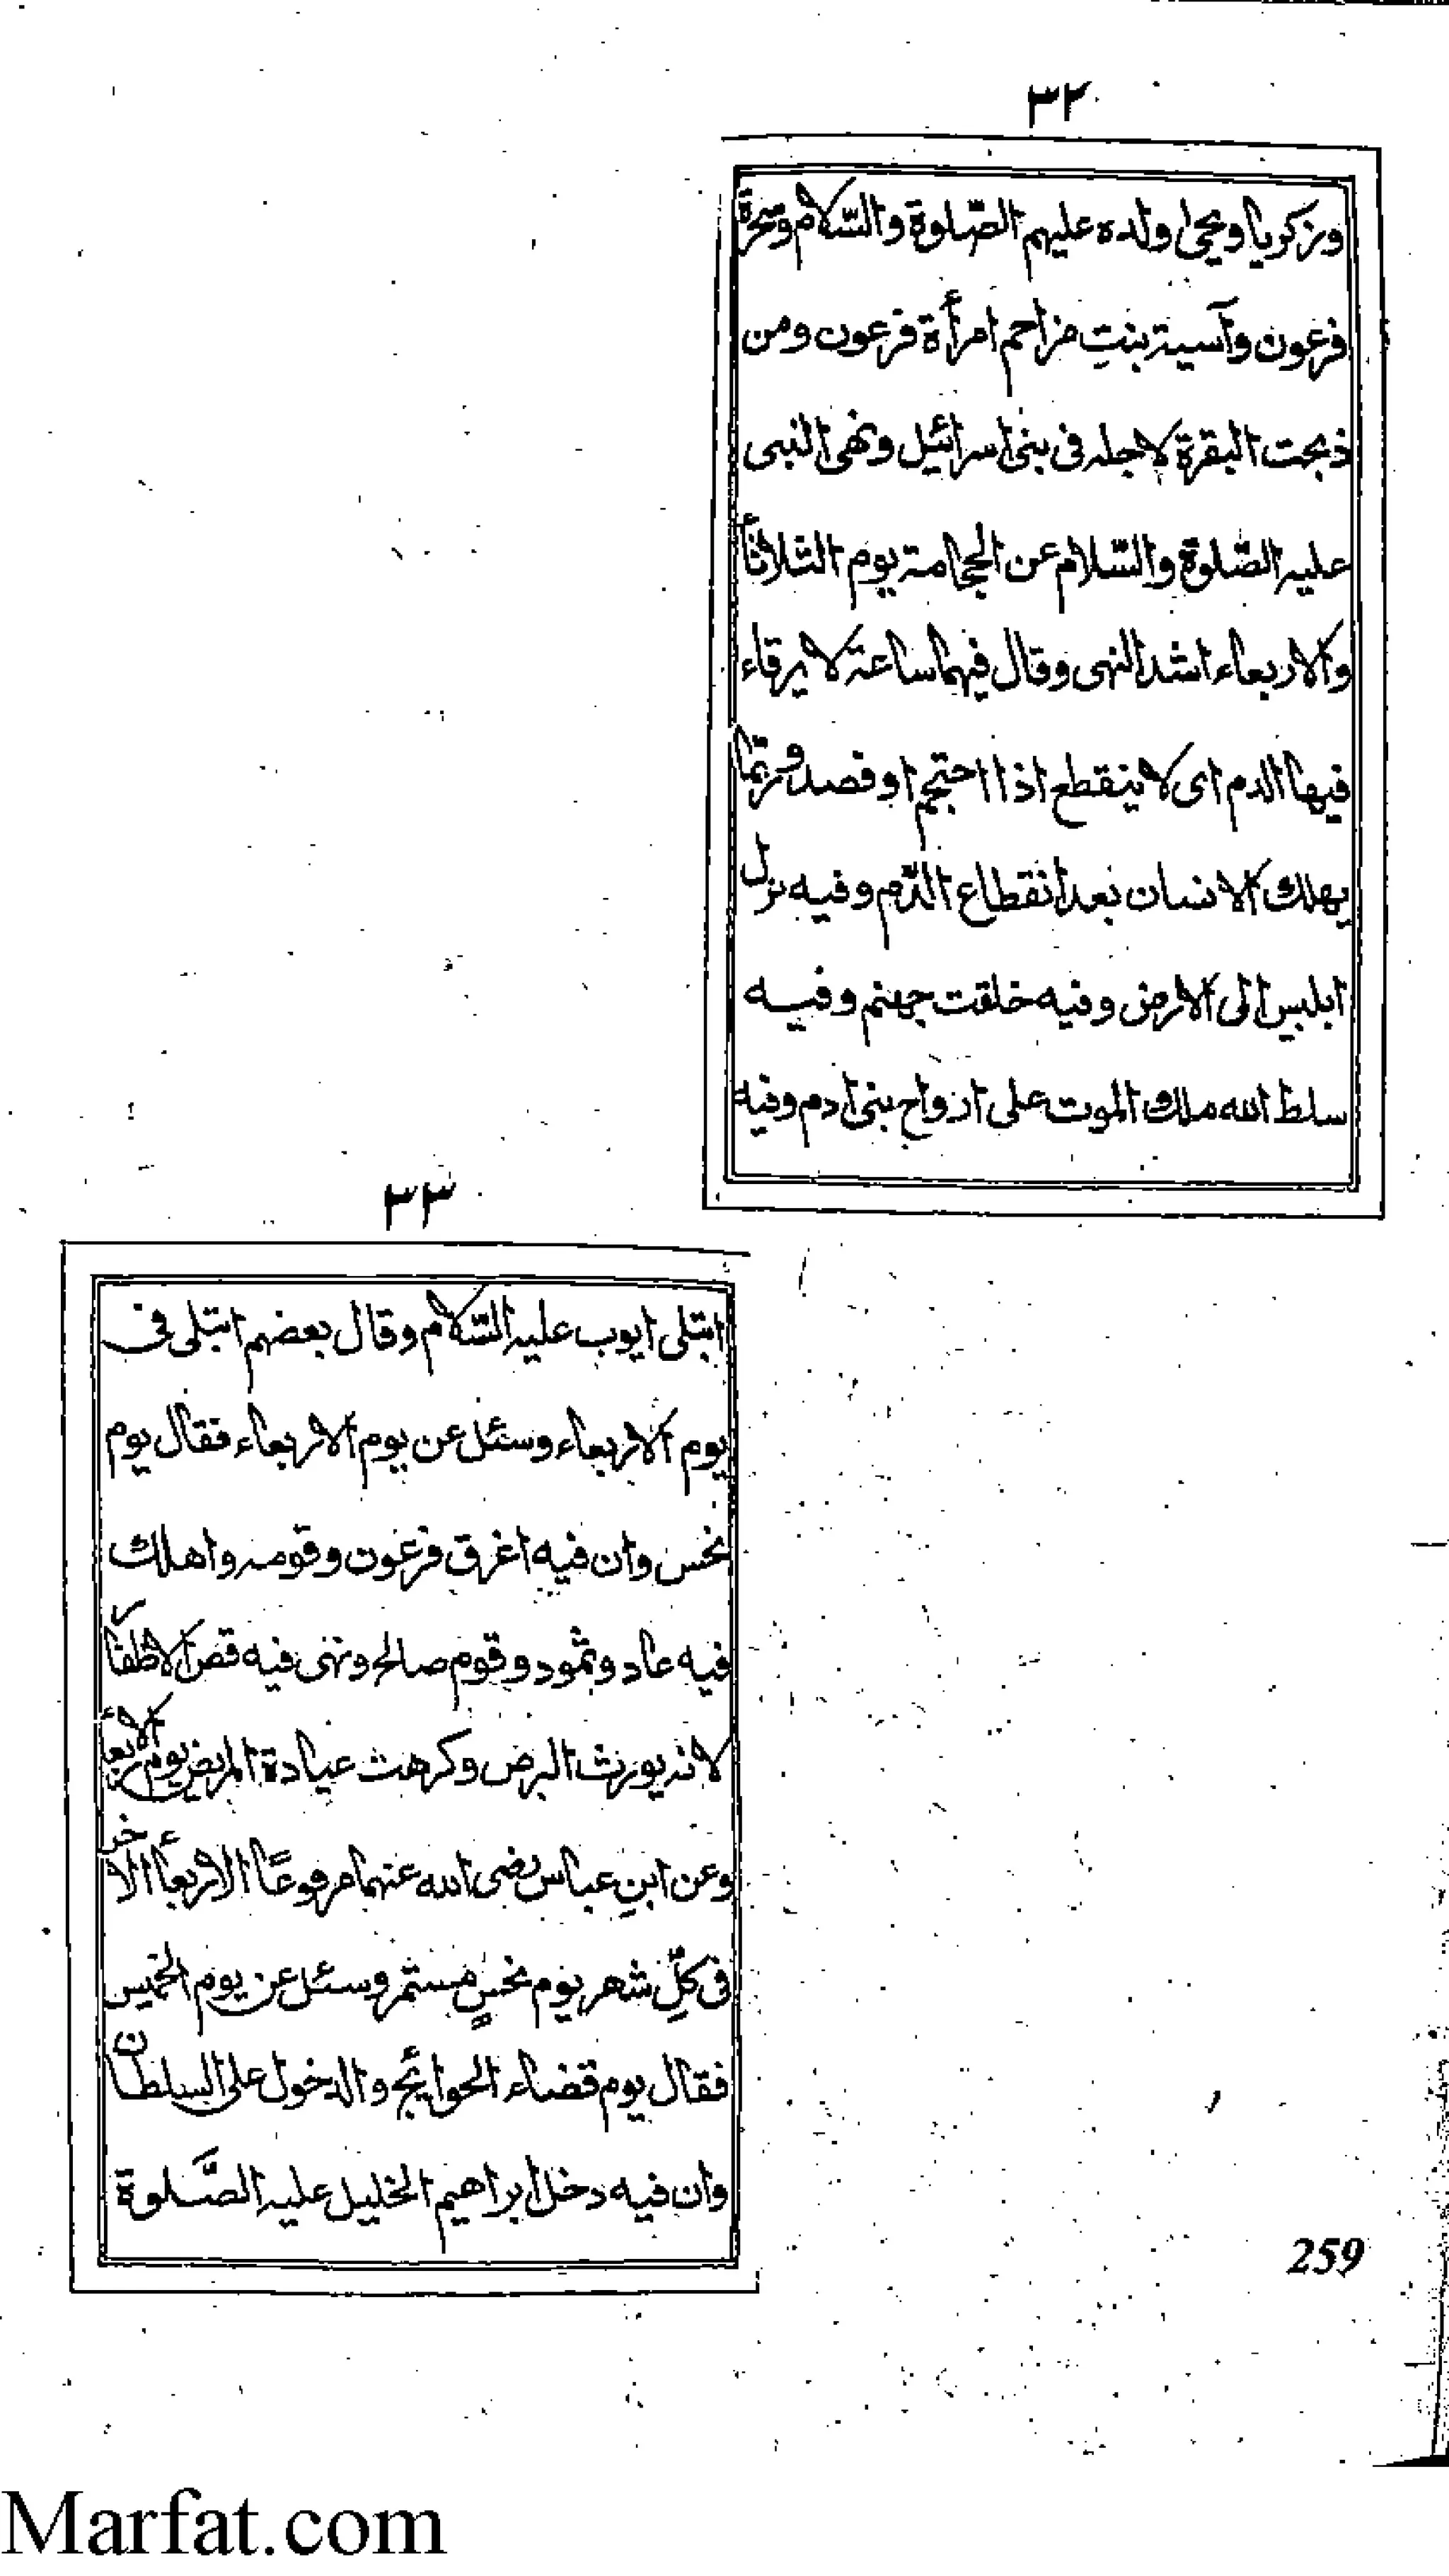 ٣٢
وزكريا ويحيى ولده عليهم الصّلوة والسّلام وسحرة
فرعون وآسية بنتِ مزاحم امرأة فرعون ومن
ذبحت البقرة لاجله فى بنى اسرائيل ونهى النبى
عليه الصّلوة والسّلام عن الحجامة يوم الثلاثأ
والاربعاء اشد النهى وقال فيهما ساعة لا يرقاء
فيها الدم اى لا ينقطع اذا احتجم او فصد وربّما
يهلك الانسان بعد انقطاع الدّم وفيه نزل
ابليس الى الارض وفيه خلقت جهنم وفيه
سلط الله ملك الموت على ارواح بنى ادم وفيه
٣٣
ابتلى ايوب عليه السّلام وقال بعضهم ابتلى فى
يوم الاربعاء وسئل عن يوم الاربعاء فقال يوم
نحس وان فيه اغرق فرعون وقومه واهلك
فيه عاد وثمود وقوم صالح ونهى فيه قص الاظفار
لانه يورث البرص وكرهت عيادة المريض يوم الاربعأ
وعن ابنِ عباس رضى الله عنهما مرفوعًا الاربعأ الاخر
فى كلِّ شهر يوم نحسٍ مستمر وسئل عن يوم الخميس
فقال يوم قضاء الحوائج والدخول على السلطان
وان فيه دخل ابراهيم الخليل عليه الصَّلوة
259
Marfat.com